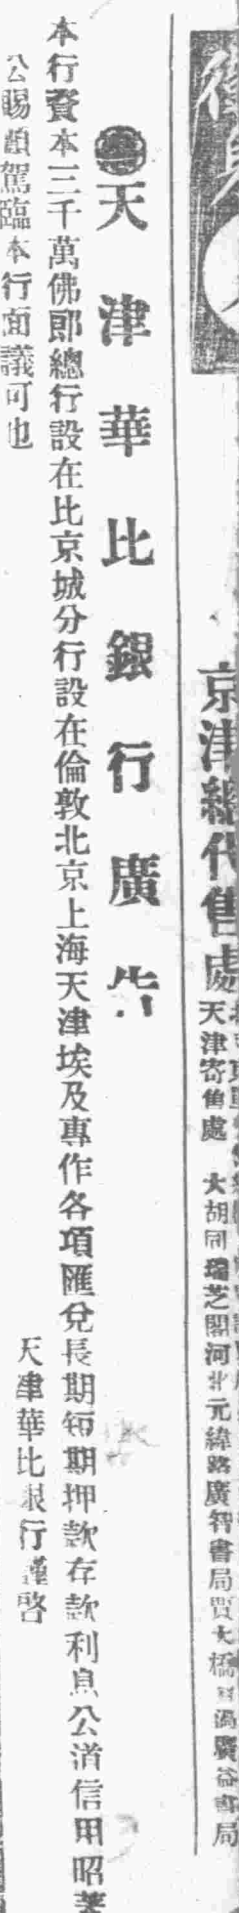 京津總代售處
天津寄售處 大胡同瑞芝閣河北元緯路廣智書局賈大橋
益書局
天津華比銀行廣告
本行資本三千萬佛郎總行設在比京城分行設在倫敦北京上海天津埃及專作各項匯兌長期短期押款存款利息公道信用昭著
公賜顧駕臨本行面議可也
天津華比銀行謹啓